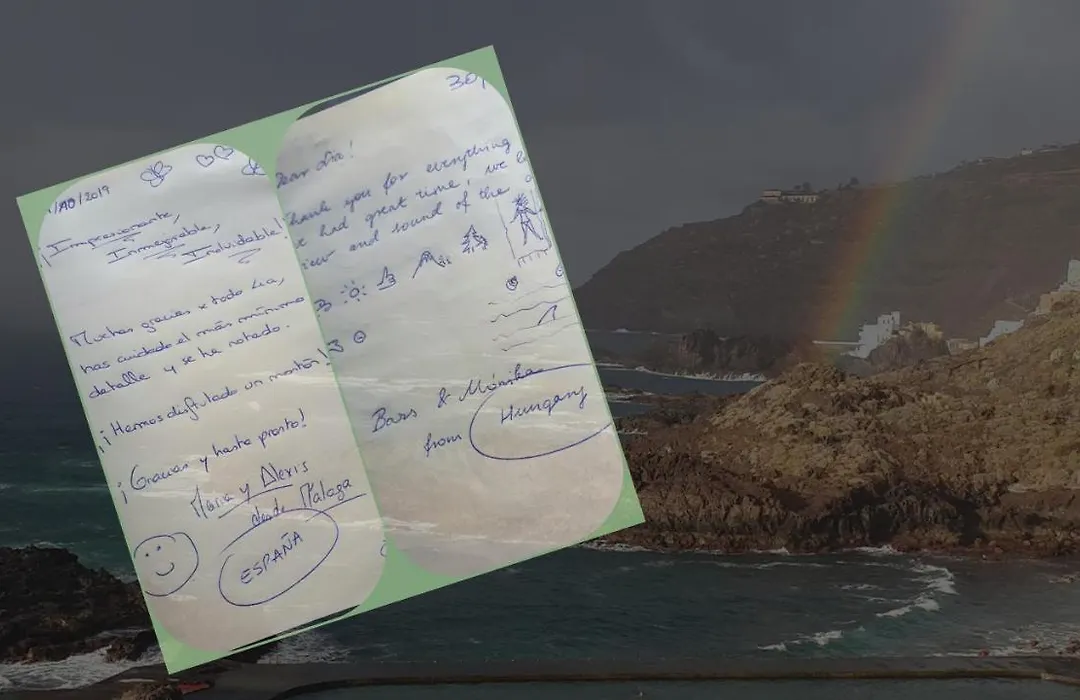 /10/2019
¡Impresionante,
Inmejorable,
Inolvidable!
Muchas gracias x todo Lia,
has cuidado el más mínimo
detalle y se ha notado.
¡Hemos disfrutado un montón!
¡Gracias y hasta pronto!
María y Alexis
desde Málaga
ESPAÑA
30,
Dear Lia!
Thank you for everything
had great time, we
and sound of the
& Mónika
from Hungary